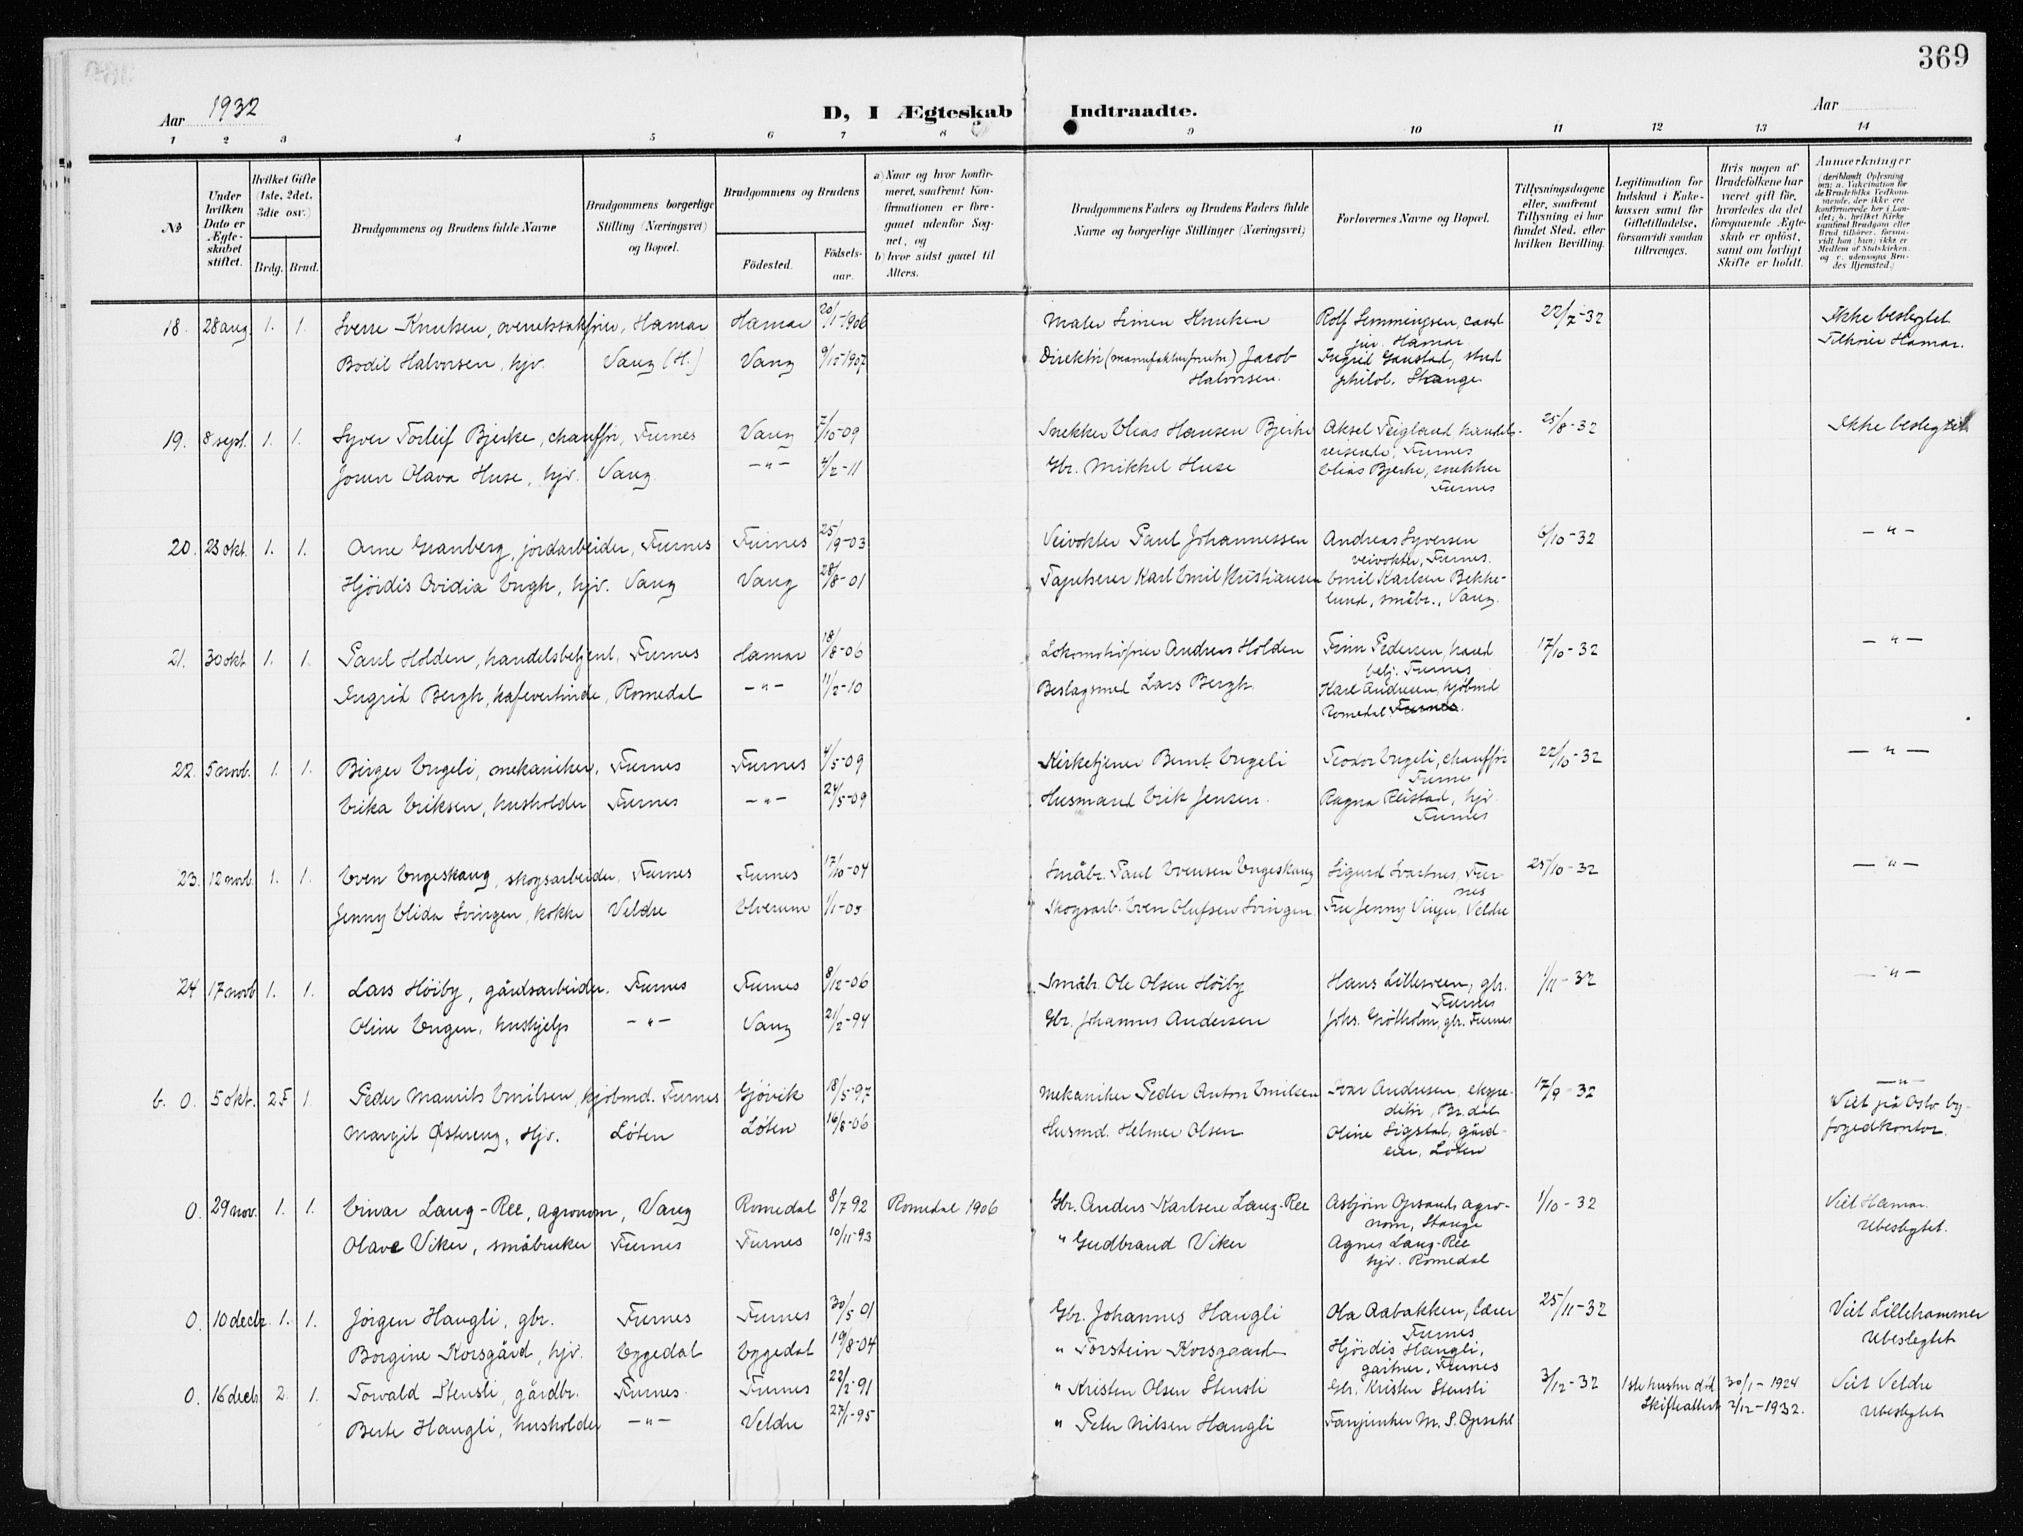 369
Aar 1932
D, I Ægteskab Indtraadte.
Aar
1 2 3 4 5 6 7 8 9 10 11 12 13 14
№
Under hvilken Dato er Ægteskabet stiftet.
Hvilket Gifte (1ste, 2det, 3die osv.)
Brdg. Brud.
Brudgommens og Brudens fulde Navne
Brudgommens borgerlige Stilling (Næringsvei) og Bopæl.
Brudgommens og Brudens
Fødested.
Fødselsaar.
a) Naar og hvor konfirmeret, saafremt Konfirmationen er foregaaet udenfor Sognet, og
b) hvor sidst gaaet til Alters.
Brudgommens Faders og Brudens Faders fulde Navne og borgerlige Stillinger (Næringsvei)
Forlovernes Navne og Bopæl.
Tillysningsdagene eller, saafremt Tillysning ei har fundet Sted, efter hvilken Bevilling.
Legitimation for Indskud i Enkekassen samt for Giftetilladelse, forsaavidt saadan tiltrænges.
Hvis nogen af Brudefolkene har været gift før, hvorledes da det foregaaende Ægteskab er opløst, samt om lovligt Skifte er holdt.
Anmærkninger (deriblandt Oplysning om: a. Vakcination for de Brudefolks Vedkommende, der ikke ere konfirmerede her i Landet; b. hvilket Kirkesamfund Brudgom eller Brud tilhører, forsaavidt han (hun) ikke er Medlem af Statskirken, og c. udensogns Brudes Hjemsted.)
18. 28 aug. 1. 1. Sverre Knutsen, overretssakfører, Hamar Hamar 20/1-1906 Maler Simen Knutsen Rolf Semmingsen, cand jur. Hamar 22/7-32 Ikke beslegtet Tilhører Hamar.
Bodil Halvorsen, hjv. Vang (H.) Vang 9/10-1907 Direktør (manufakturforretn.) Jacob Halvorsen. Ingrid Gaustad, stud philol. Stange
19. 8 sept. 1. 1. Syver Torleif Bjerke, chauffør, Furnes Vang 7/10-09 Snekker Elias Hansen Bjerke Aksel Feigland handelsreisende, Furnes 25/8-32 Ikke beslegtet
Joren Olava Huse, hjv. Vang -"- 4/2-11 Gbr. Mikkel Huse Elias Bjerke, snekker Furnes
20. 23 okt. 1. 1. Arne Granberg, jordarbeider, Furnes Furnes 25/9-03 Veivokter Paul Johannessen Andreas Syversen veivokter, Furnes. 6/10-32 -"-
Hjördis Ovidia Engh, hjv. Vang Vang 28/8-01 Tapetserer Karl Emil Kristiansen Emil Karlsen Bekkelund, småbr., Vang.
21. 30 okt. 1. 1. Paul Holden, handelsbetjent, Furnes Hamar 18/8-06 Lokomotivfører Andreas Holden Finn Pedersen, hand betj. Furnes 17/10-32 -"-
Ingrid Bergh, kafevertinde, Romedal -"- 11/2-10 Beslagsmed Lars Bergh. Karl Andresen, kjøbmd Romedal Furnes.
22. 5 novb. 1. 1. Birger Engeli, mekaniker, Furnes Furnes 4/5-09 Kirketjener Bernt Engeli Teodor Engeli, chauffør Furnes 22/10-32 -"-
Erika Eriksen, husholder Furnes -"- 24/5-09 Husmand Erik Jensen. Ragna Reistad, hjv Furnes
23. 12 novb. 1. 1. Even Engeskaug, skogsarbeider, Furnes Furnes 17/10-04 Småbr. Paul Evensen Engeskaug Sigurd Svartnes, Furnes 25/10-32 -"-
Jenny Elida Svingen, kokke Veldre Elverum 1/1-05 Skogsarb. Even Olufsen Svingen Fru Jenny Vinger, Veldre
24 17 novb 1. 1. Lars Höiby, gårdsarbeider. Furnes Furnes 8/12-06 Småbr. Ole Olsen Höiby Hans Lilleveen, gbr. Furnes 1/11-32 -"-
Oline Engen, hushjelp -"- Vang 21/2-94 Gbr. Johannes Andersen Johs. Grötholm, gbr. Furnes
b. 0. 5 okt. 2 F 1. Peder Maurits Emilsen, kjøbmd. Furnes Gjøvik 18/5-97 Mekaniker Peder Anton Emilsen Ivar Andresen, ekspeditør, Br.dal 17/9-32 -"- Viet på Oslo byfogedkontor.
Margit Østreng, Hjv. Løten Løten 16/8-06 Husmd. Helmer Olsen Oline Sigstad, gårdeier, Løten
0. 29 nov. 1. 1. Einar Lang-Ree, agronom, Vang Romedal 8/7 92 Romedal 1906 Gbr. Anders Karlsen Lang-Ree Asbjørn Opsand, agronom, Stange 1/10-32 Viet Hamar. Ubeslegtet.
Olave Viker, småbruker Furnes Furnes 10/11-93 " Gudbrand Viker Agnes Lang-Ree hjv. Romedal
0. 10 decbr 1. 1. Jörgen Haugli, gbr. Furnes Furnes 30/5 01 Gbr. Johannes Haugli Ola Aabakken, lærer Furnes 25/11-32 Viet Lillehammer Ubeslegtet
Borgine Korsgård, hjv. Eggedal Eggedal 19/8-04 " Torstein Korsgaard Hjördis Haugli, gartner, Furnes
0. 16 decb. 2. 1. Torvald Stensli, gårdbr. Furnes. Furnes 22/2-91 " Kristen Olsen Stensli Gbr. Kristen Stensli 3/12-32 1ste hustru död 30/1-1924 Viet Veldre
Berte Haugli, husholder -"- Veldre 27/1-95 " Peter Nilsen Haugli M. S. Opsahl Skifteattest 2/12-1932. Ubeslegtet